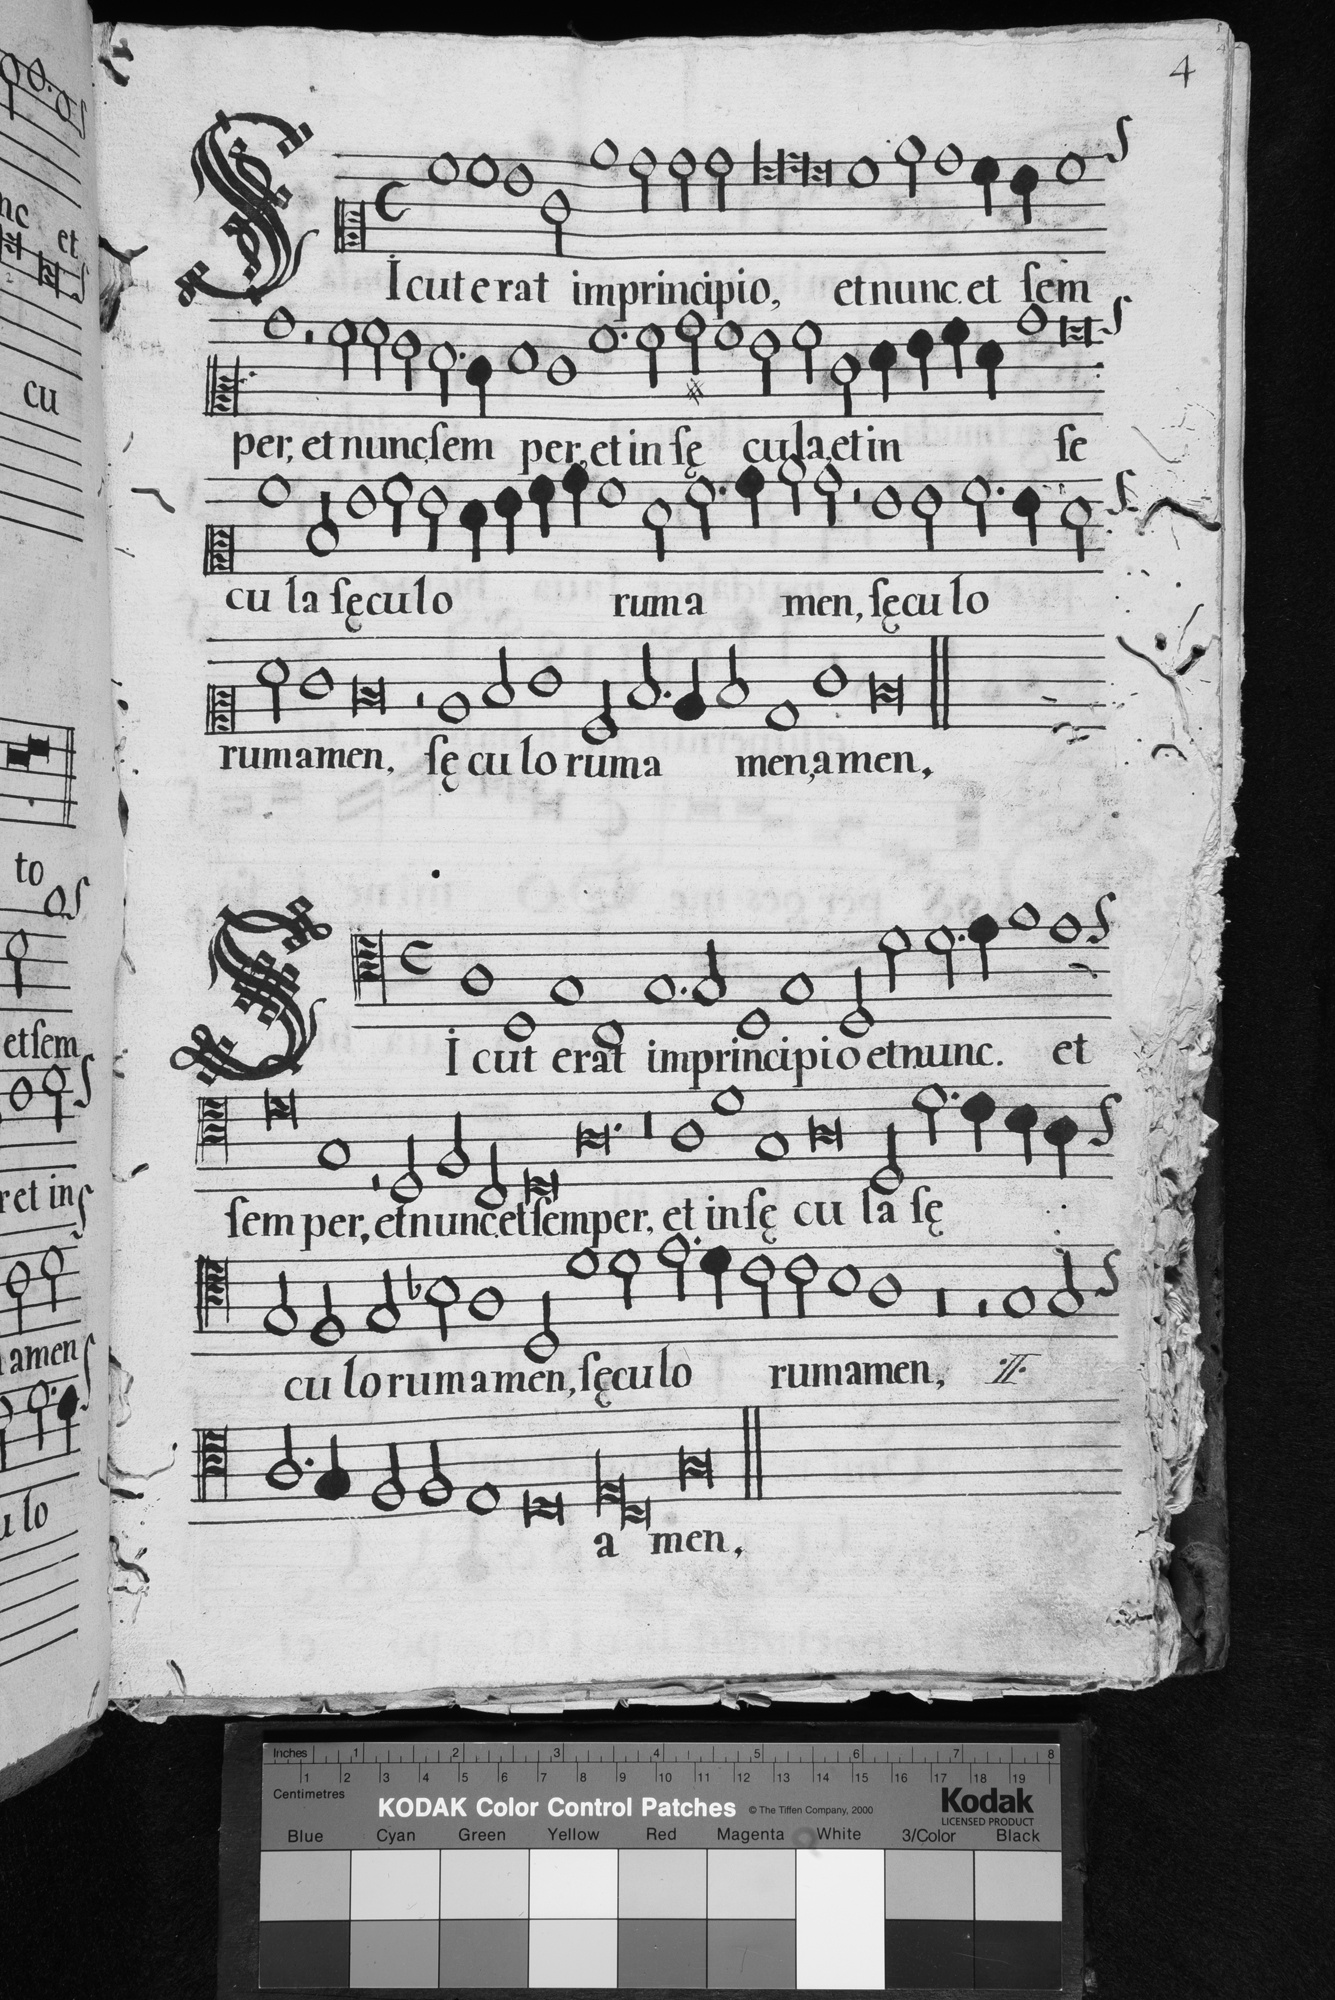 4
Sicut erat imprincipio, et nunc. et sem
per, et nunc, sem per, et in sę cula, et in se
cu la sęculo rum a men, sęculo
rum amen, sę cu lo rum a men, amen,
Sicut erat imprincipio et nunc. et
semper, et nunc, et semper, et in sę cu la sę
cu lo rum amen, sęculo rum amen, ij
a men,
nc et
cu
to
et sem
r et in
amen
u lo
Inches 1 2 3 4 5 6 7 8
1 2 3 4 5 6 7 8 9 10 11 12 13 14 15 16 17 18 19
Centimetres
KODAK Color Control Patches © The Tiffen Company, 2000 Kodak
LICENSED PRODUCT
Blue Cyan Green Yellow Red Magenta White 3/Color Black